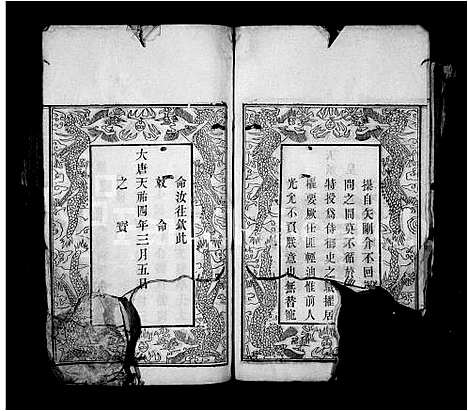 操自矢剛介不回
問之間莫不循於
特授爲侍御史之職擢居
權要厥任匪輕油惟前人
光尤不負朕意也無替寵
命汝往欽此
敕命
大唐天祐四年三月五日
之寶